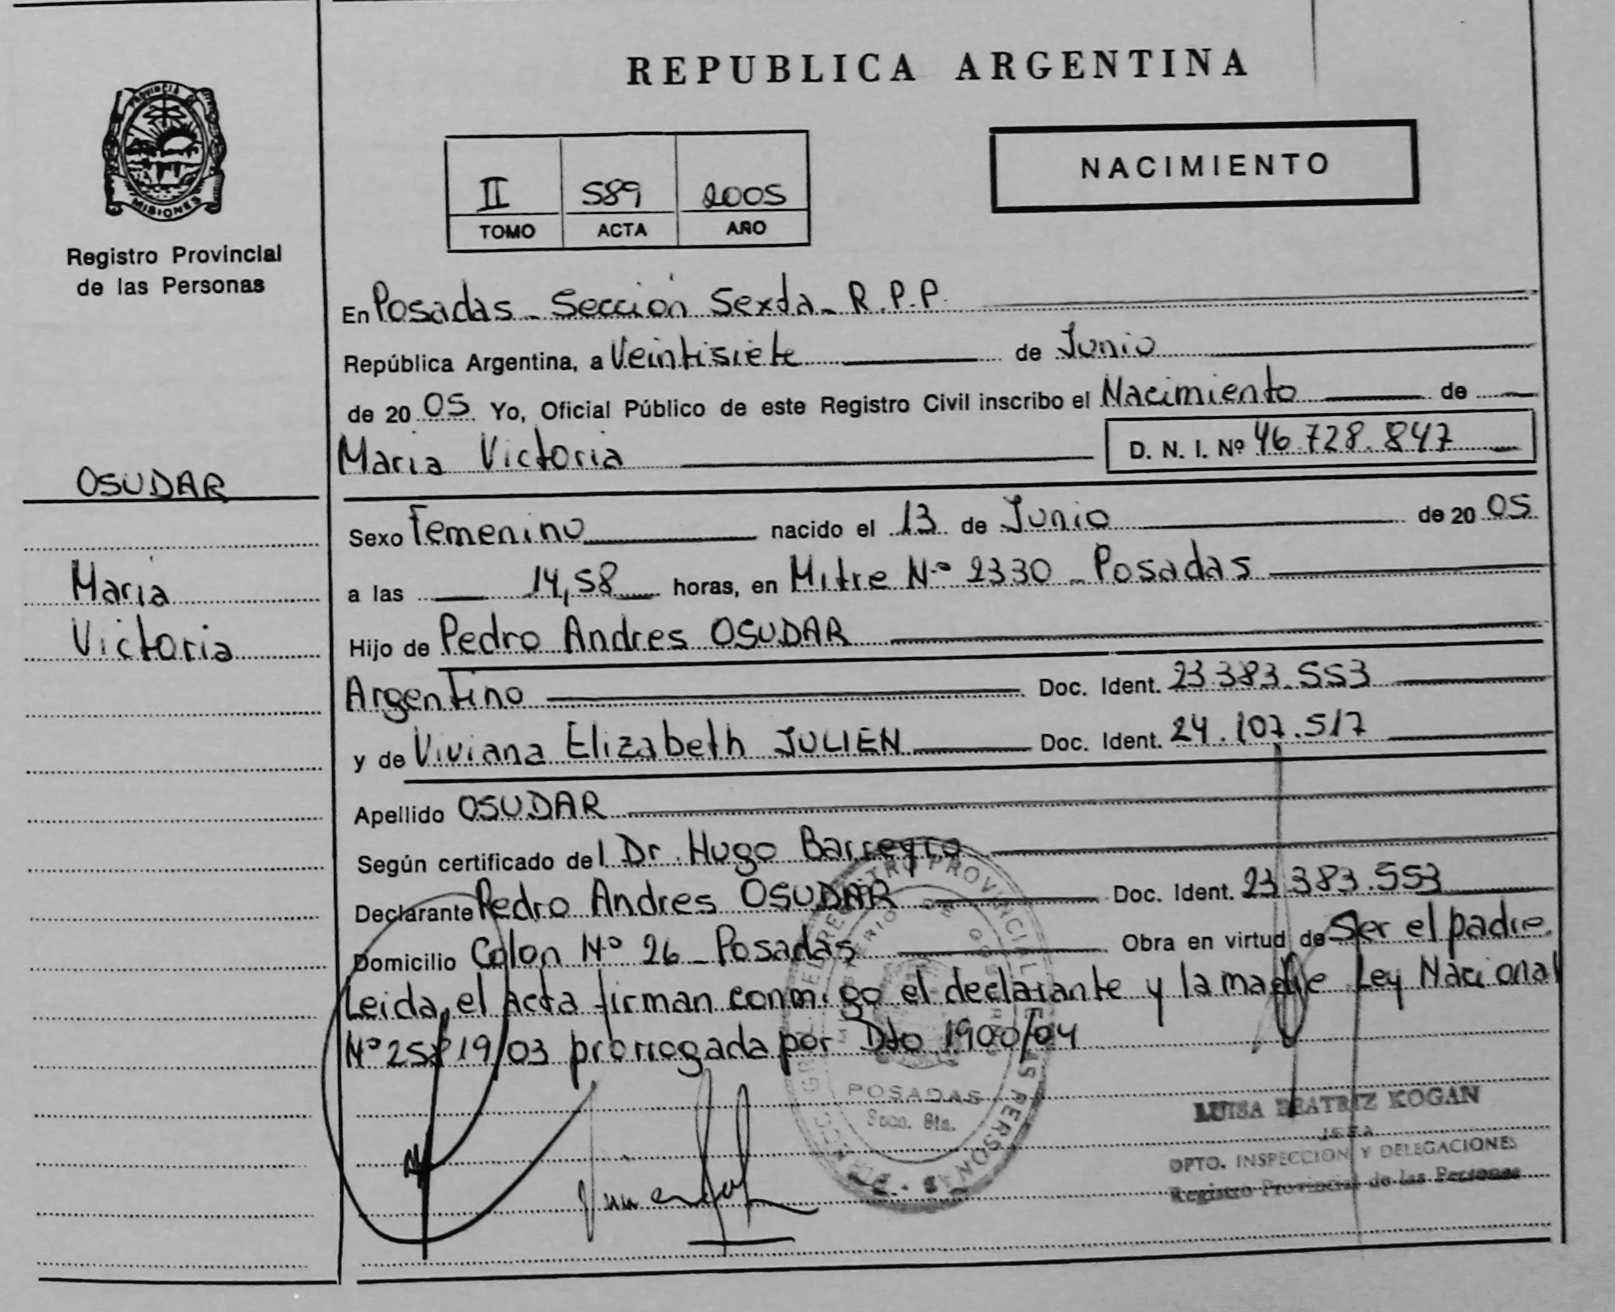 REPUBLICA ARGENTINA
PROVINCIA DE
MISIONES
Registro Provincial
de las Personas
II 589 2005
TOMO ACTA AÑO
NACIMIENTO
En Posadas - Sección Sexta - R.P.P.
República Argentina, a Veintisiete de Junio
de 2005 Yo, Oficial Público de este Registro Civil inscribo el Nacimiento de
Maria Victoria D. N. I. Nº 46.728.847
OSUDAR
Maria
Victoria
Sexo Femenino nacido el 13 de Junio de 2005
a las 14,58 horas, en Mitre Nº 2330 - Posadas
Hijo de Pedro Andres OSUDAR
Argentino Doc. Ident. 23.383.553
y de Viviana Elizabeth JULIEN Doc. Ident. 24.107.517
Apellido OSUDAR
Según certificado del Dr. Hugo Barreyro
Declarante Pedro Andres OSUDAR Doc. Ident. 23.383.553
Domicilio Colon Nº 26 - Posadas Obra en virtud de Ser el padre.
Leida el acta firman conmigo el declarante y la madre Ley Nacional
Nº 25819/03 prorrogada por Dto 1900/04
POSADAS
Secc. 6ta.
LUISA BEATRIZ KOGAN
JEFA
DPTO. INSPECCION Y DELEGACIONES
Registro Provincial de las Personas